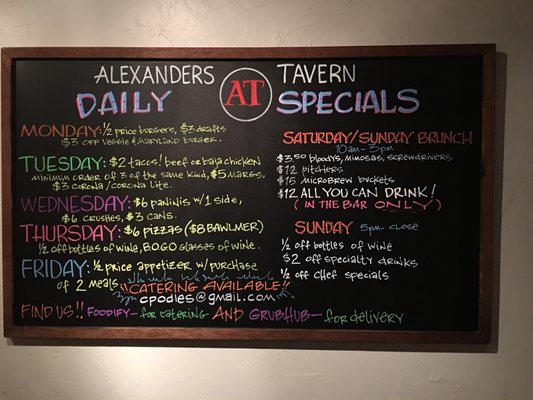 ALEXANDERS AT TAVERN
DAILY SPECIALS
MONDAY: 1/2 price burgers, $3 drafts
$3 OFF VEGGIE & MARYLAND BURGER.
TUESDAY: $2 tacos! beef or baja chicken
MINIMUM ORDER OF 3 OF THE SAME KIND, $5 MARGS,
$3 CORONA/CORONA LITE.
WEDNESDAY: $6 PANINIS W/1 SIDE,
$6 CRUSHES, $3 CANS.
THURSDAY: $6 PIZZAS ($8 BAWLMER)
1/2 OFF BOTTLES OF WINE, BOGO GLASSES OF WINE.
FRIDAY: 1/2 PRICE APPETIZER W/PURCHASE
OF 2 MEALS
"CATERING AVAILABLE!!
cpodles@gmail.com
SATURDAY/SUNDAY BRUNCH
10am-3pm
$3.50 bloodys, mimosas, screwdrivers
$12 pitchers
$15 microbrew buckets
$12 ALL YOU CAN DRINK!
(IN THE BAR ONLY)
SUNDAY 5pm-close
1/2 off bottles of wine
$2 off specialty drinks
1/2 off chef specials
FIND US!! FOODIFY-for catering AND GRUBHUB-for delivery